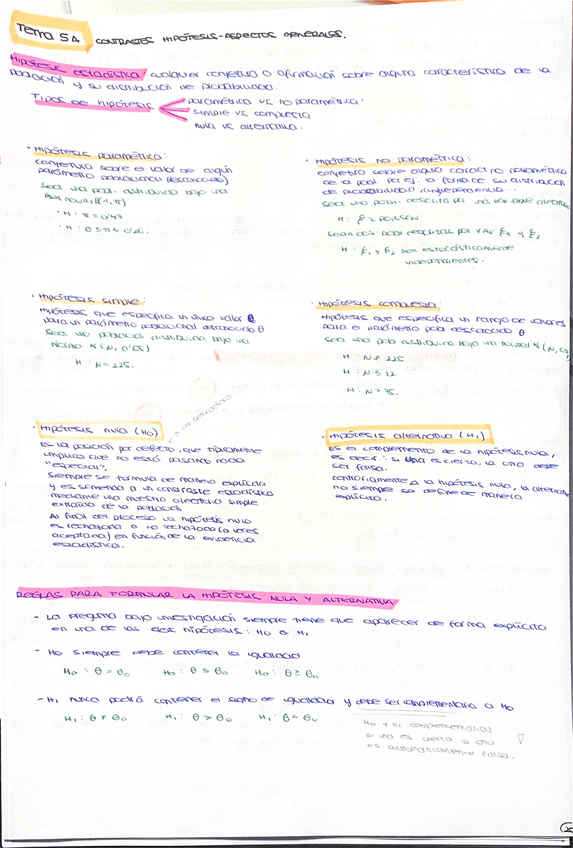 TEMA 5A CONTRASTES HIPÓTESIS - ASPECTOS GENERALES.
Hipótesis estadística: cualquier conjetura o afirmación sobre alguna característica de la
población y su distribución de probabilidad.
Tipos de hipótesis
paramétrica vs no paramétrica
simple vs compuesta
nula vs alternativa.
· Hipótesis paramétrica:
conjetura sobre el valor de algún
parámetro poblacional (desconocido)
sea una pobl. distribuida bajo una
Bernoulli (1, π)
· H: π = 0'47
· H: 0 ≤ π ≤ 0'26.
· Hipótesis no paramétrica:
conjetura sobre alguna caract. no paramétrica
de la pobl. por ej. la forma de su distribución
de probabilidad / independencia...
sea una pobl. descrita por una variable
H: ξ ~ Poisson
sean dos pobl descritas por VAs ξ₁ y ξ₂
H: ξ₁ y ξ₂ son estocásticamente
independientes.
· Hipótesis simple:
hipótesis que especifica un único valor θ₀
para un parámetro poblacional desconocido θ
sea una población distribuida bajo una
Normal N (μ, 0'65)
H: μ = 225.
· Hipótesis compuesta:
hipótesis que especifica un rango de valores
para el parámetro pobl desconocido θ
sea una pobl distribuida bajo una normal N (μ,
H: μ ≠ 225
H: μ ≤ 12
H: μ > 75.
· Hipótesis nula (H₀)
Es la posición por defecto, que típicamente
implica que no está pasando nada
"especial".
Siempre se formula de manera explícita
y es sometida a un contraste estadístico
mediante una muestra aleatoria simple
extraída de la población
Al final del proceso la hipótesis nula
es rechazada o no rechazada (a veces
aceptada) en función de la evidencia
estadística.
· Hipótesis alternativa (H₁)
Es el complemento de la hipótesis nula,
es decir: si una es cierta, la otra debe
ser falsa.
Contrariamente a la hipótesis nula, la alternativa
no siempre se define de manera
explícita.
REGLAS PARA FORMULAR LA HIPÓTESIS NULA Y ALTERNATIVA
- La pregunta bajo investigación siempre tiene que aparecer de forma explícita
en una de las dos hipótesis: H₀ o H₁
- H₀ siempre debe contener la igualdad
H₀: θ = θ₀ H₀: θ ≤ θ₀ H₀: θ ≥ θ₀
- H₁ nunca podrá contener el signo de igualdad y debe ser complementaria a H₀
H₁: θ ≠ θ₀ H₁: θ > θ₀ H₁: θ < θ₀
H₀ y H₁ complementarias
si una es cierta, la otra
es automáticamente falsa.